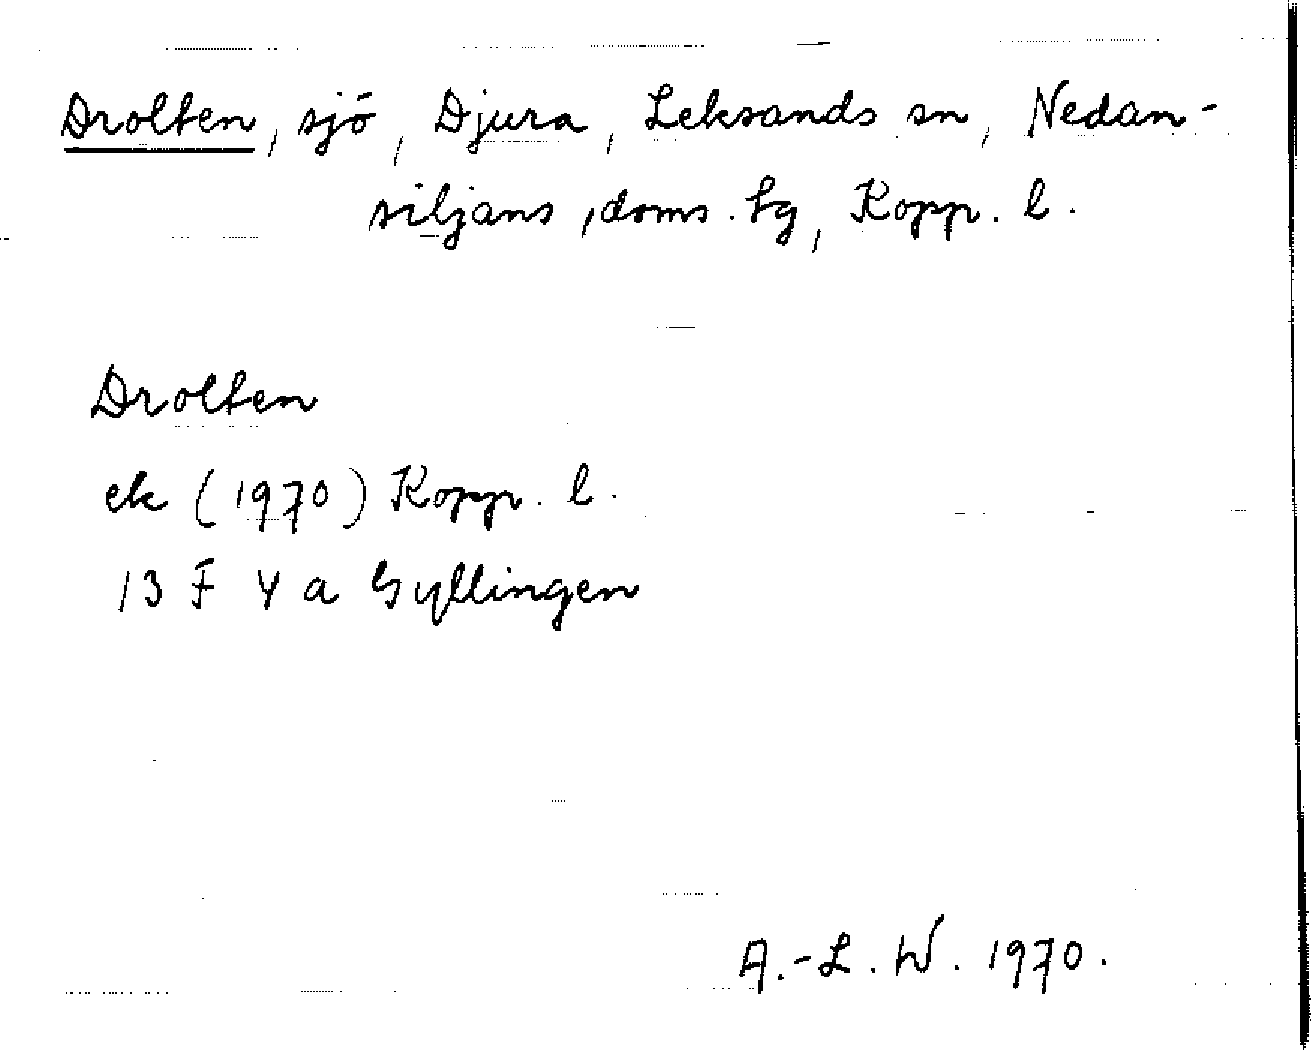 Drolten, sjö, Djura, Leksands sn, Nedan-
siljans, doms. tg, Kopp. l.
Drolten
ek (1970) Kopp. l.
13 F 4 a Gyllingen
A.-L. W. 1970.